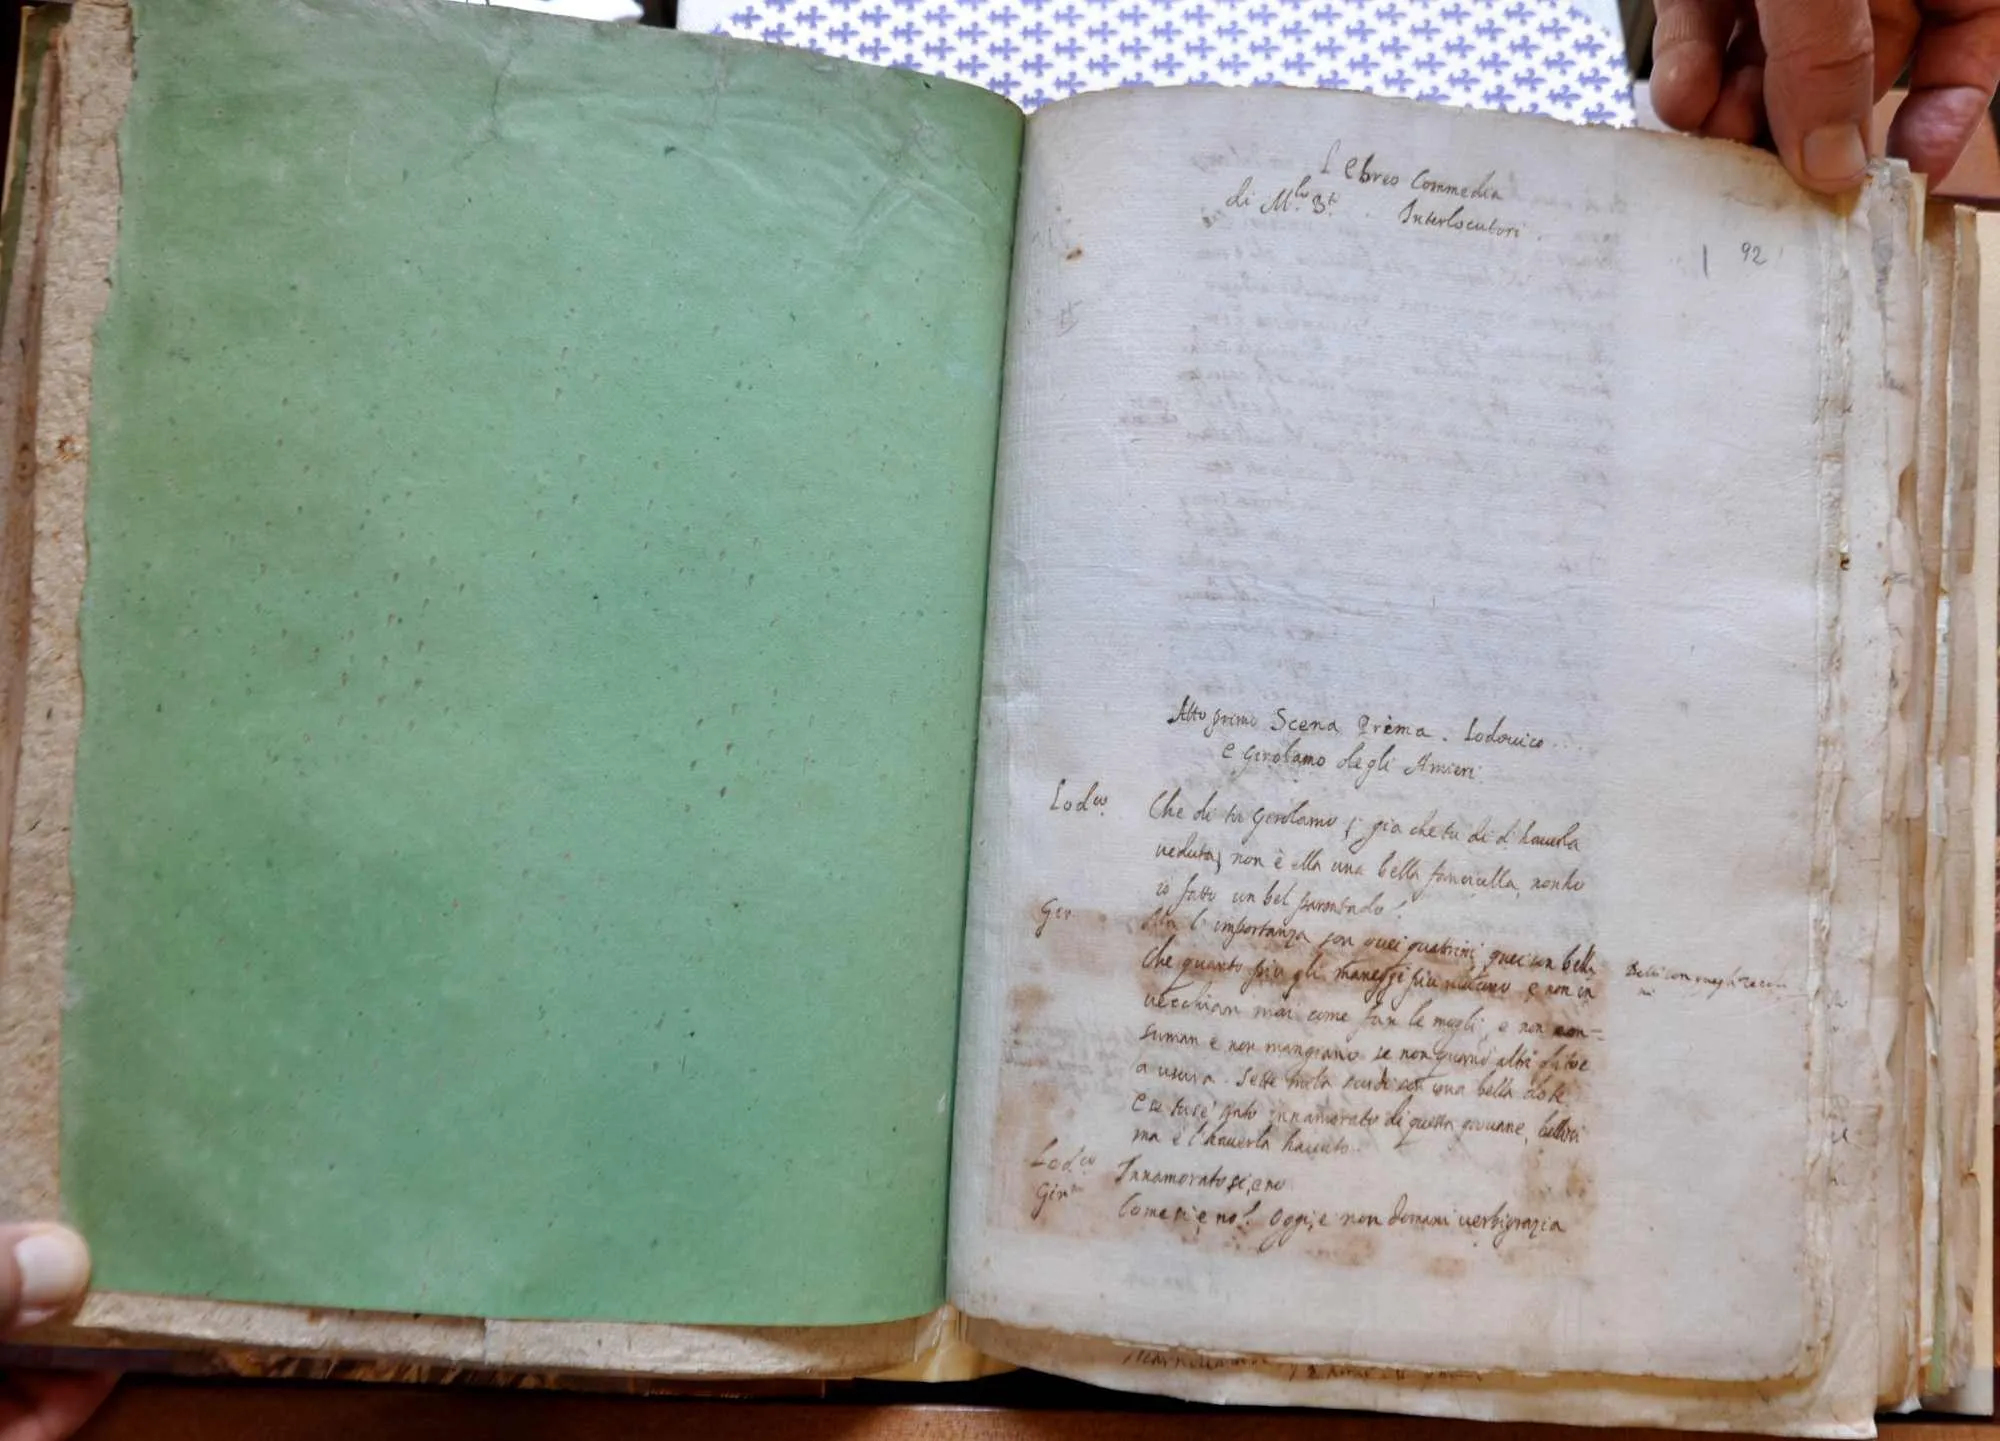 L Ebreo Commedia
di M.lo B.t . Interlocutori .
92
Atto primo Scena Prima . Lodouico
e Girolamo degli Amieri
Lod.co Che di tu Girolamo ; gia che tu di d' hauerla
ueduta, non è ella una bella fanciulla, non ho
io fatto un bel parentado!
Gir. l' importanza son quei quattrini, quei son belli
Che quanto piu gli maneggi piu e non in
uecchian mai come fan le mogli, e non con=
suman e non mangiano se non quando altri
a usura. Sette mila scudi son una bella dote
e se tu se' stato innamorato di questa giouane, bellissi
ma è l'hauerla hauuta.
Lod.co Innamorato si, e no
Gir.o Come si e no! Oggi, e non domani uerbigrazia